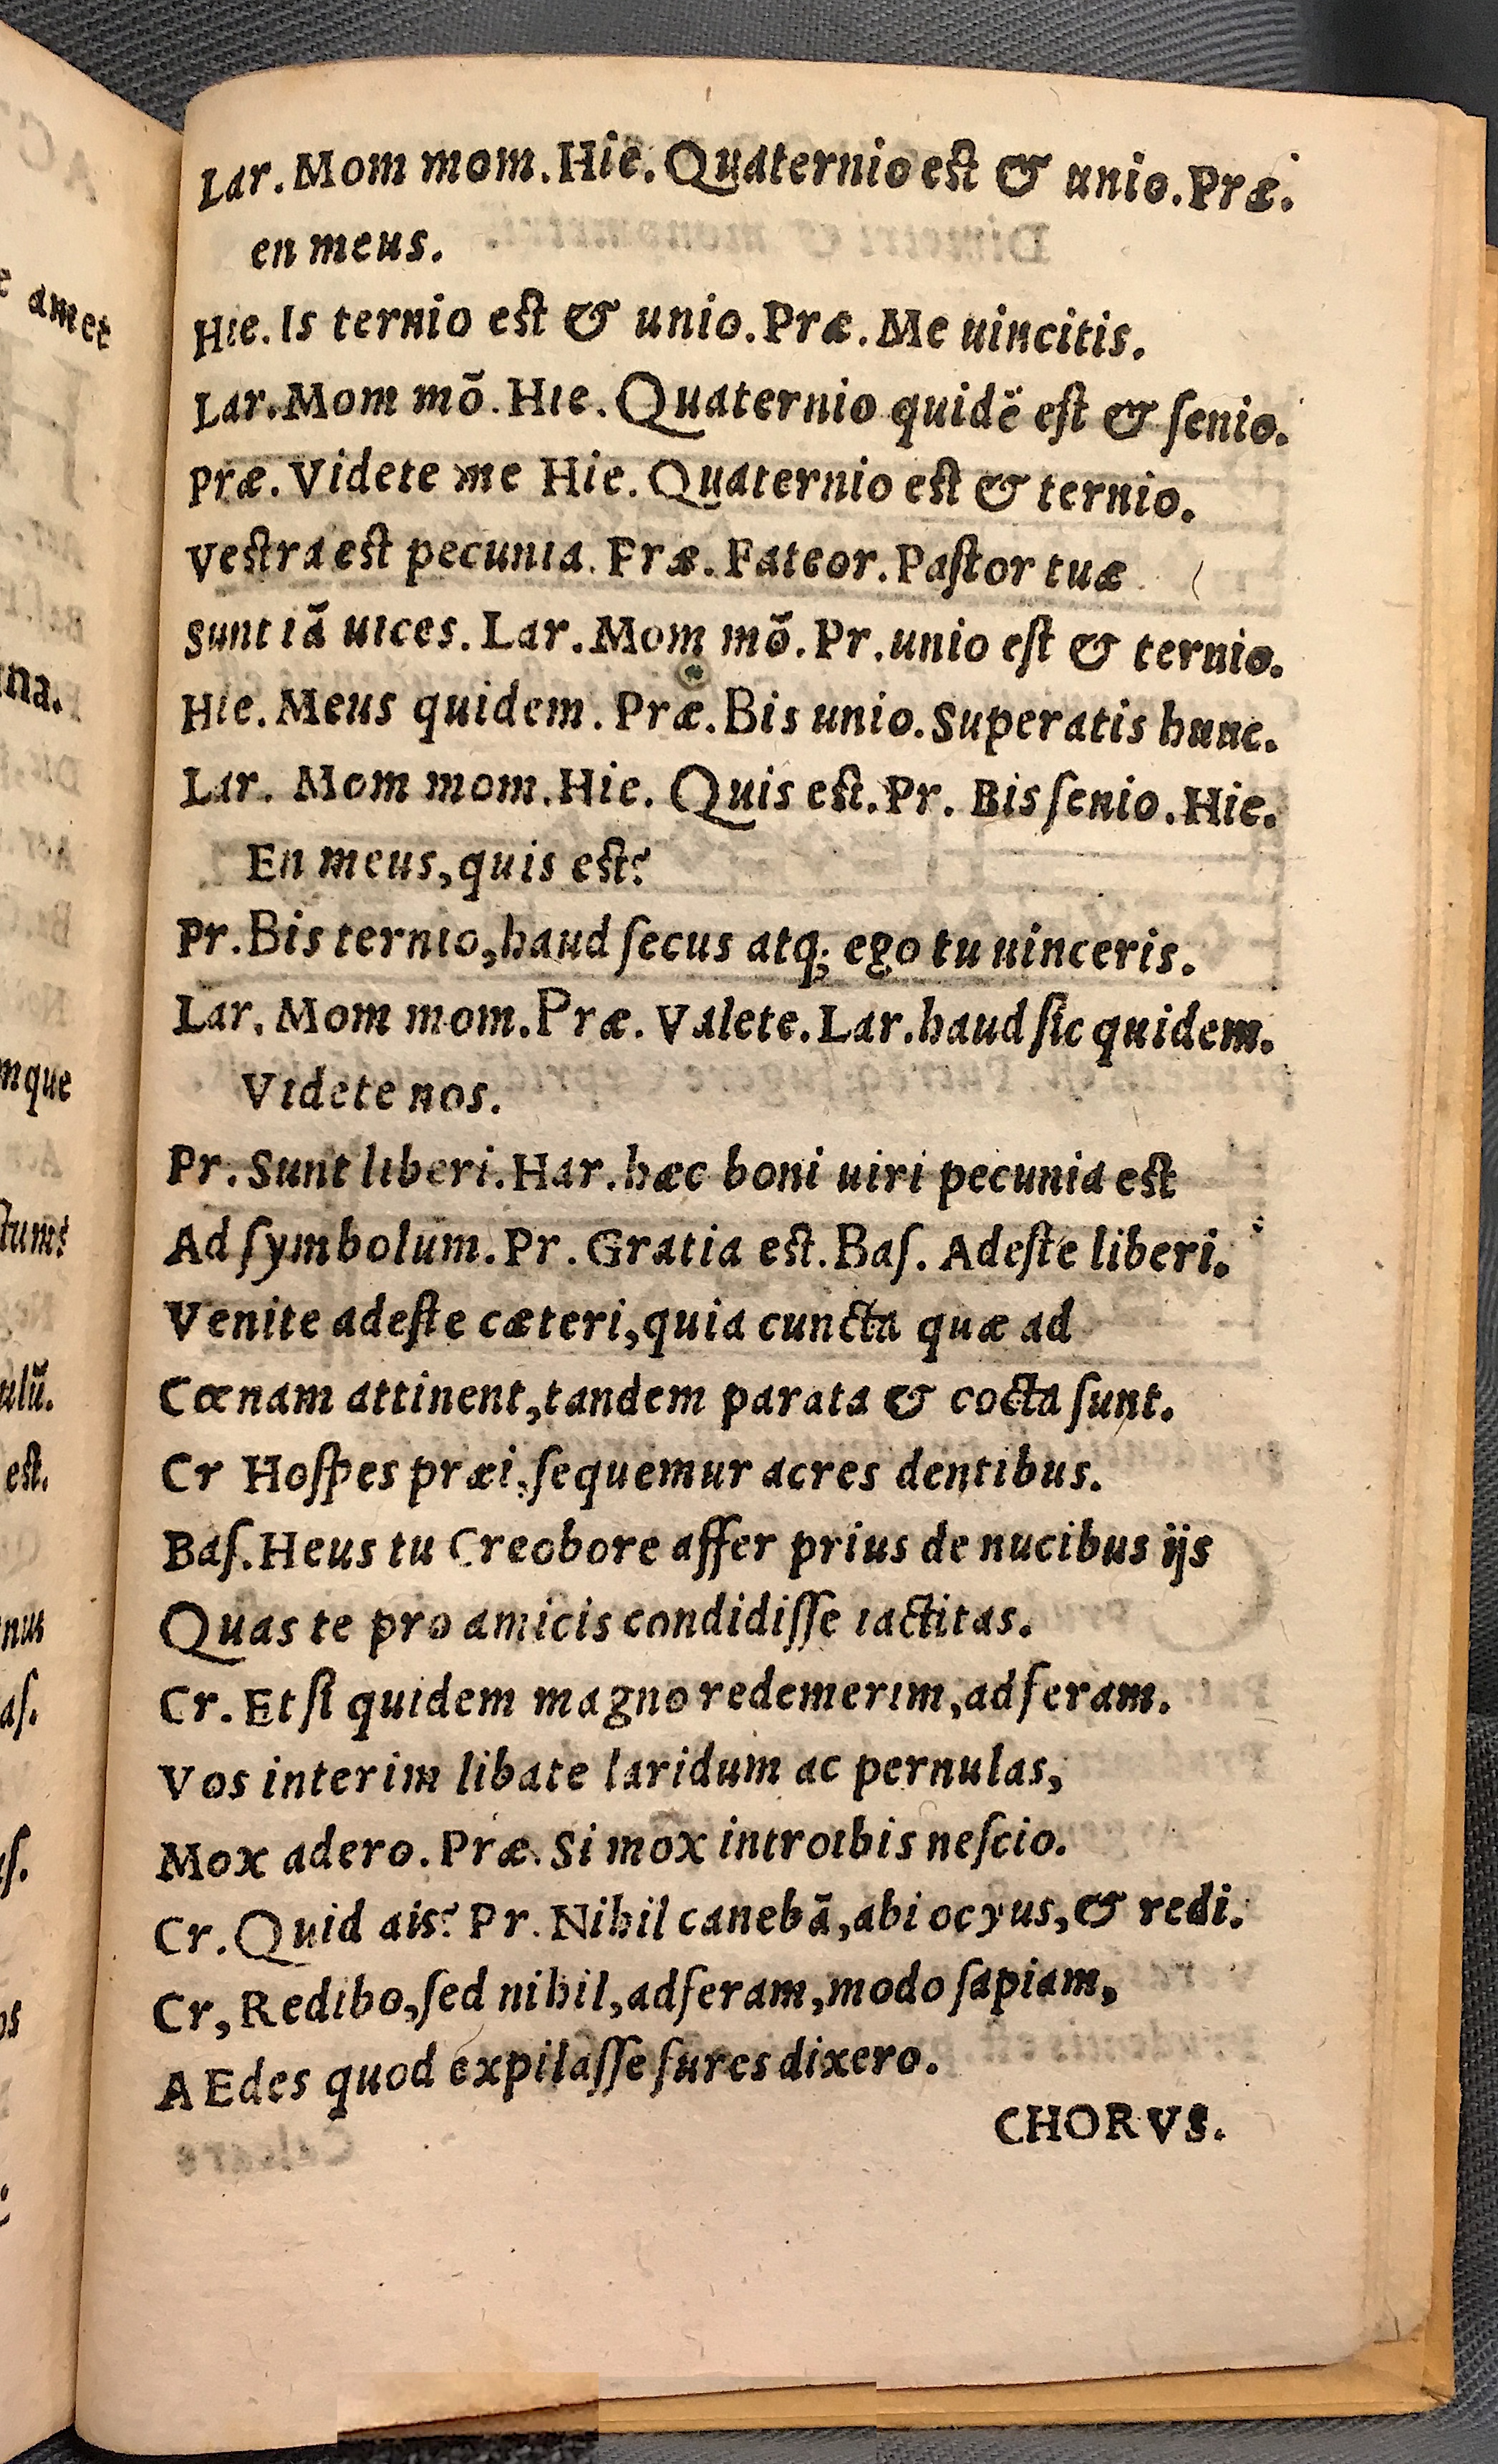 Lar. Mom mom. Hie. Quaternio est & unio. Præ.
en meus.
Hie. Is ternio est & unio. Præ. Me uincitis.
Lar. Mom mõ. Hie. Quaternio quidẽ est & ſenio.
Præ. Videte me Hie. Quaternio est & ternio.
Vestra est pecunia. Præ. Fateor. Paſtor tuæ
Sunt iã uices. Lar. Mom mõ. Pr. unio eſt & ternio.
Hie. Meus quidem. Præ. Bis unio. Superatis hunc.
Lar. Mom mom. Hie. Quis est. Pr. Bis ſenio. Hie.
En meus, quis est?
Pr. Bis ternio, haud ſecus atq; ego tu uinceris.
Lar. Mom mom. Præ. Valete. Lar. haud ſic quidem.
Videte nos.
Pr. Sunt liberi. Har. hæc boni uiri pecunia est
Ad ſymbolum. Pr. Gratia est. Baſ. Adeſte liberi.
Venite adeſte cæteri, quia cuncta quæ ad
Cœnam attinent, tandem parata & cocta ſunt.
Cr Hoſpes præi, ſequemur acres dentibus.
Baſ. Heus tu Creobore affer prius de nucibus ijs
Quas te pro amicis condidiſſe iactitas.
Cr. Et ſi quidem magno redemerim, adferam.
Vos interim libate laridum ac pernulas,
Mox adero. Præ. Si mox introibis neſcio.
Cr. Quid ais? Pr. Nihil canebã, abi ocyus, & redi.
Cr, Redibo, ſed nihil, adferam, modo ſapiam,
AEdes quod expilaſſe fures dixero.
CHORVS.